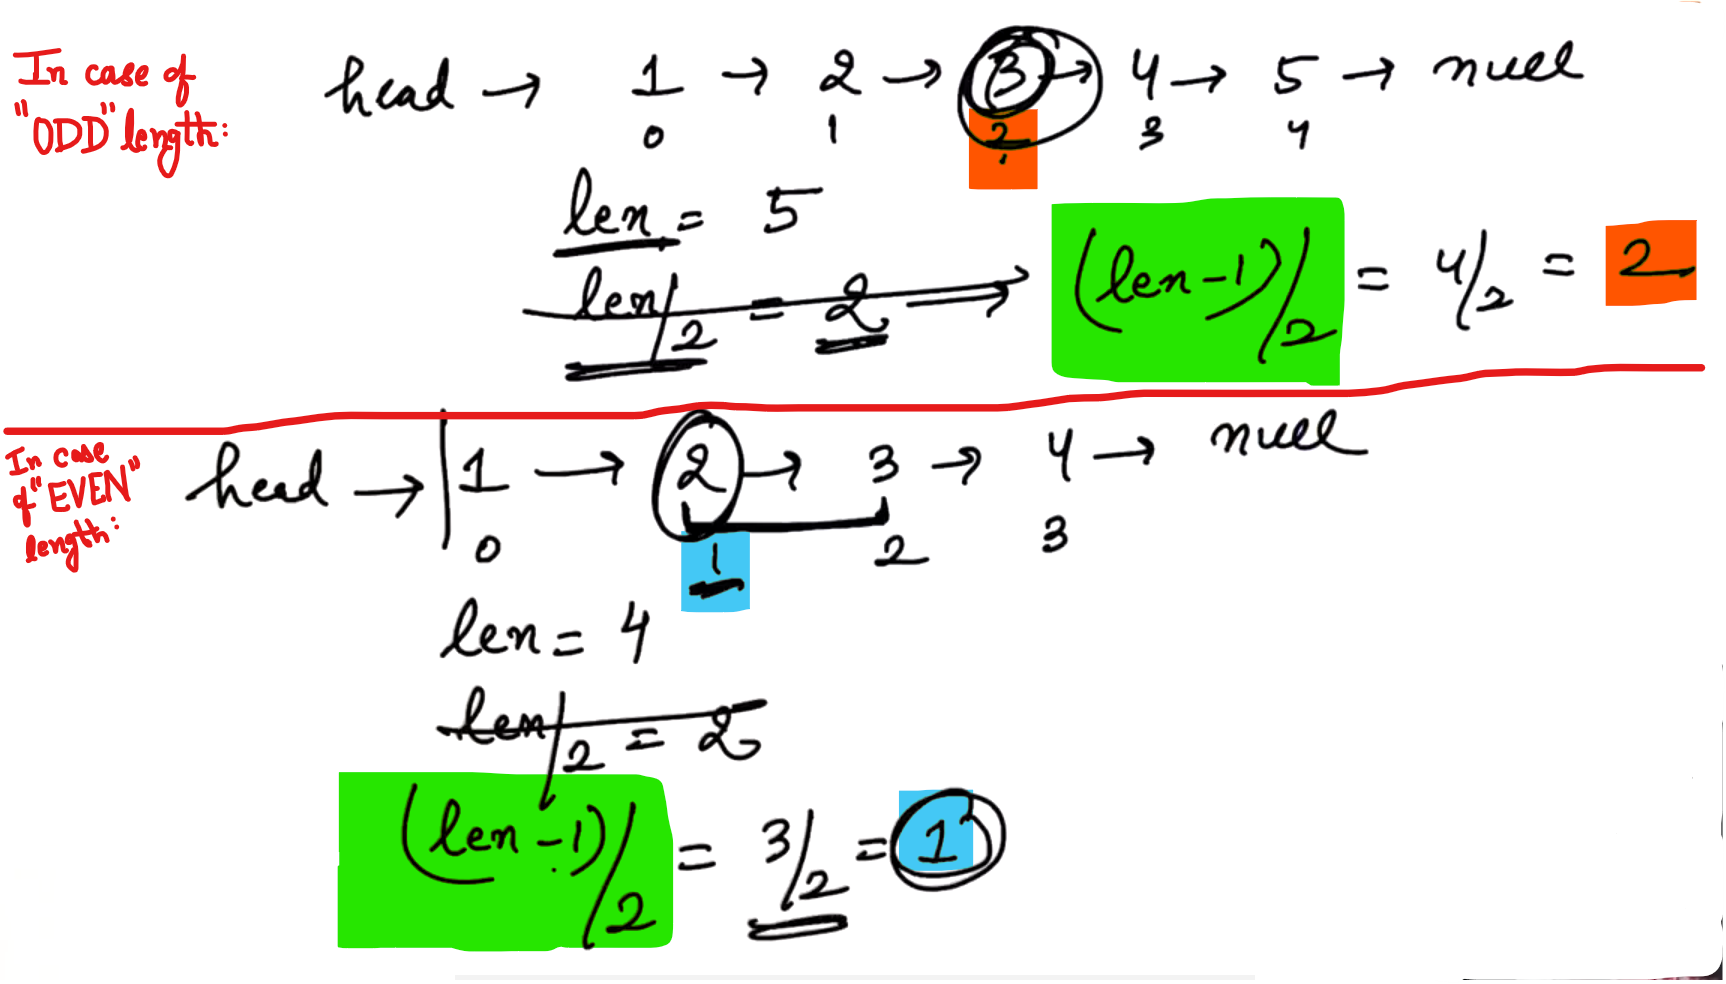 In case of
"ODD" length:
head → 1 → 2 → 3 → 4 → 5 → null
0 1 2 3 4
len = 5
len/2 = 2 ⟹ (len-1)/2 = 4/2 = 2
In case
of "EVEN"
length:
head → 1 → 2 → 3 → 4 → null
0 1 2 3
len = 4
len/2 = 2
(len-1)/2 = 3/2 = 1